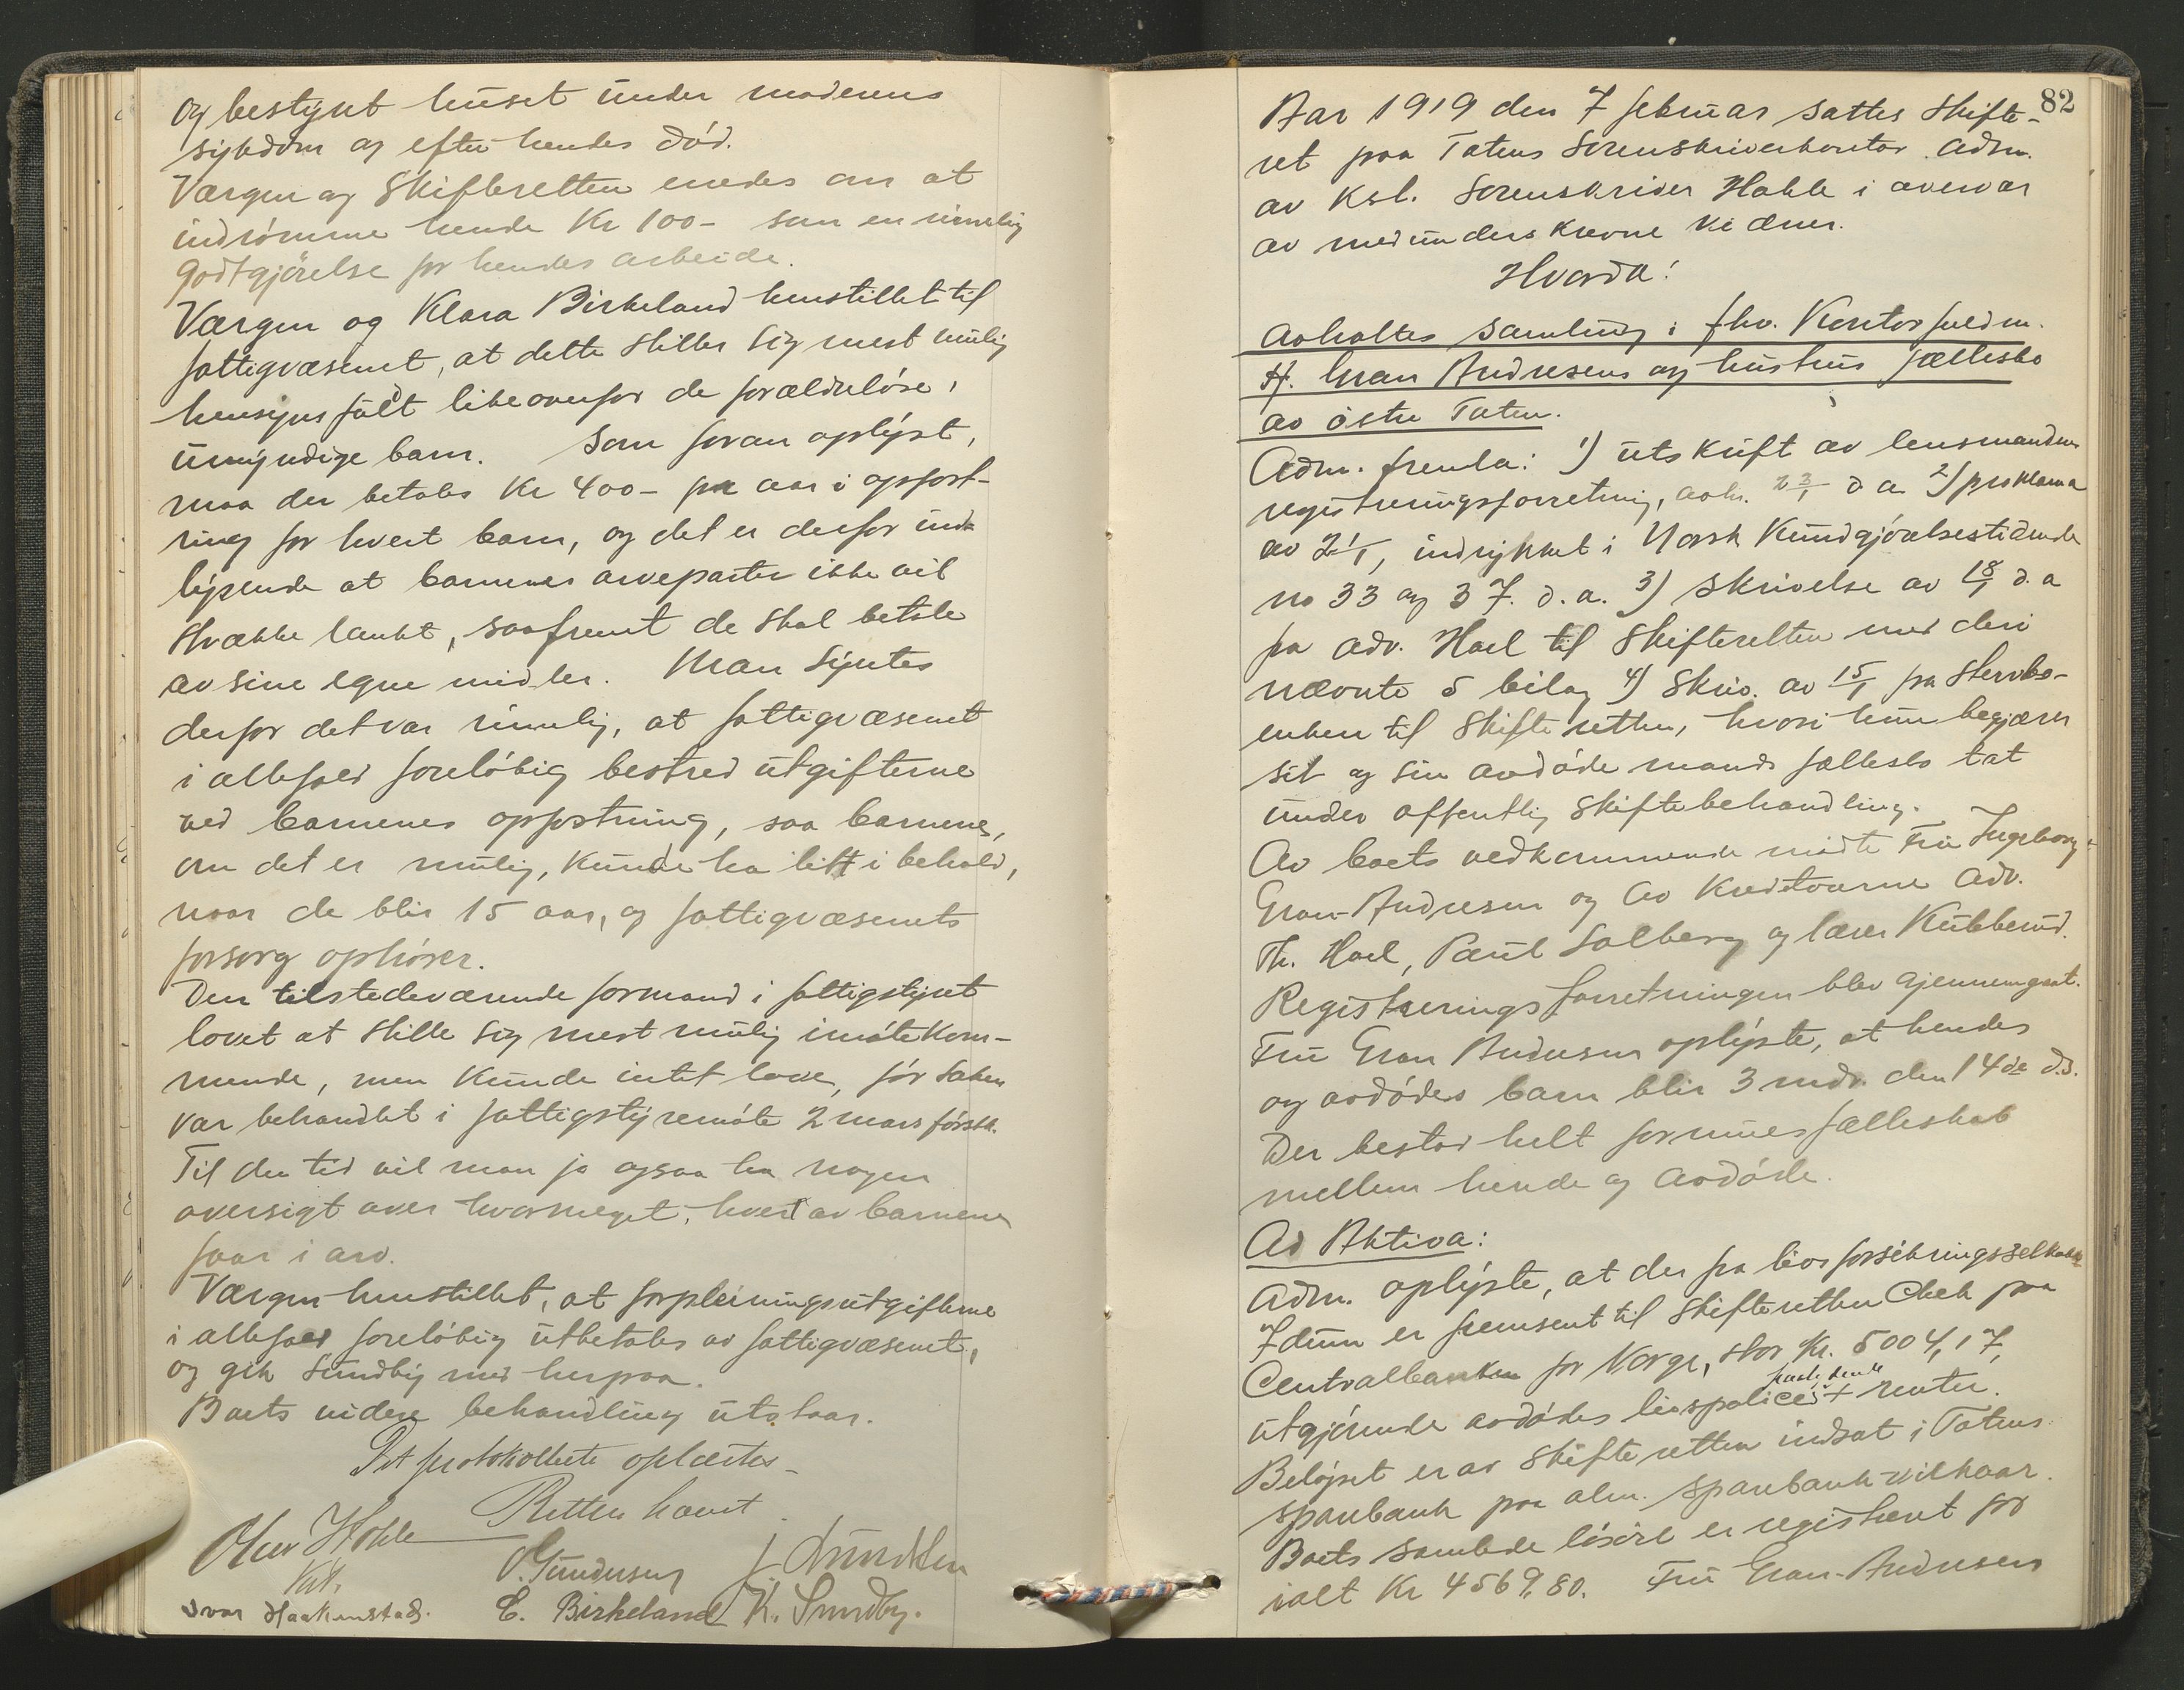 og bestyret huset under moderens
sykdom og efter hendes död.
Værgen og Skifteretten enedes om at
indrömme hende Kr 100- som en rimelig
godtgjörelse for hendes arbeide.
Værgen og Klara Birkeland henstillet til
fattigvæsenet, at dette stiller sig mest mulig
hensynsfuldt likeoverfor de forældrelöse,
umyndige barn. Som foran oplyst,
maa der betales Kr 400- pr aar i opfost-
ring for hvert barn, og det er derfor ind-
lysende at barnenes arveparter ikke vil
strække langt, saafremt de skal betale
av sine egne midler. Man syntes
derfor det var rimelig, at fattigvæsenet
i allefald foreløbig bestred utgifterne
ved barnenes opfostring, saa barnene,
om det er mulig, kunde ha litt i behold,
naar de blir 15 aar, og fattigvæsenets
forsorg ophörer.
Den tilstedeværende formand i fattigstyret
lovet at stille sig mest mulig imötekom-
mende, men kunde intet love, för saken
var behandlet i fattigstyremöte 2 mars förstk.
Til den tid vil man jo ogsaa ha nogen
oversigt over hvormeget hvert av barnene
faar i arv.
Værgen henstillet, at forpleiningsutgifterne
i allefald forelöbig utbetales av fattigvæsenet,
og gik Sundby med herpaa.
Boets videre behandling utstaar.
Det protokollerte oplæstes-
Retten hævet
Oluv Hohle
Kst.
O. Gundersen
J. Lundsten
Ivar Haakenstad.
E. Birkeland
K. Sundby.
82
Aar 1919 den 7 februar sattes Skifte-
ret paa Totens Sorenskriverkontor adm.
av Kst. Sorenskriver Hohle i overvær
av medunderskrevne vidner.
Hvorda!
Avholtes samling i fhv. Kontorfuldm.
H. Gran Andresens og hustrus fællesbo
av östre Toten.
Adm. fremla: 1) utskrift av lensmandens
registreringsforretning, avh. 23/1 d a 2) proklama
av 21/1, indrykket i Norsk Kundgjörelsestidende
no 33 og 37. d. a. 3) skrivelse av 18/1 d. a
fra adv. Hoel til Skifteretten med deri
nævnte 5 bilag 4) Skriv. av 15/1 fra Stervbo-
enken til Skifteretten, hvori hun begjærer
sit og sin avdöde mands fællesbo tat
under offentlig Skiftebehandling.
Av boets vedkommende mödte Fru Ingeborg
Gran-Andresen og av Kreditorerne adv.
Th. Hoel, Paul Solberg og lærer Kubberud.
Registreringsforretningen blev gjennemgaat.
Fru Gran Andresen oplyste, at hendes
og avdödes barn blir 3 mdr. den 14de ds.
Der bestod helt formuesfælleskab
mellem hende og avdöde.
Ad Aktiva:
Adm. oplyste, at der fra livsforsikringsselskabet
Idun er fremsent til Skifteretten Chek paa
Centralbanken for Norge, stor Kr. 5004,17,
utgjörende avdödes livspolices + renter.
Belöpet er av Skifteretten indsat i Totens
sparebank paa alm. sparebank-vilkaar.
Boets samlede lösöre er registreret for
ialt Kr 4569,80. Fru Gran-Andresen